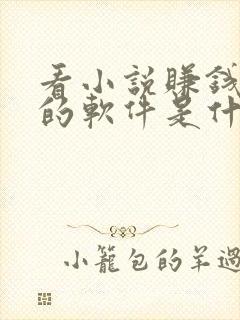 看小説賺錢
的軟件是什
小籠包的羊過